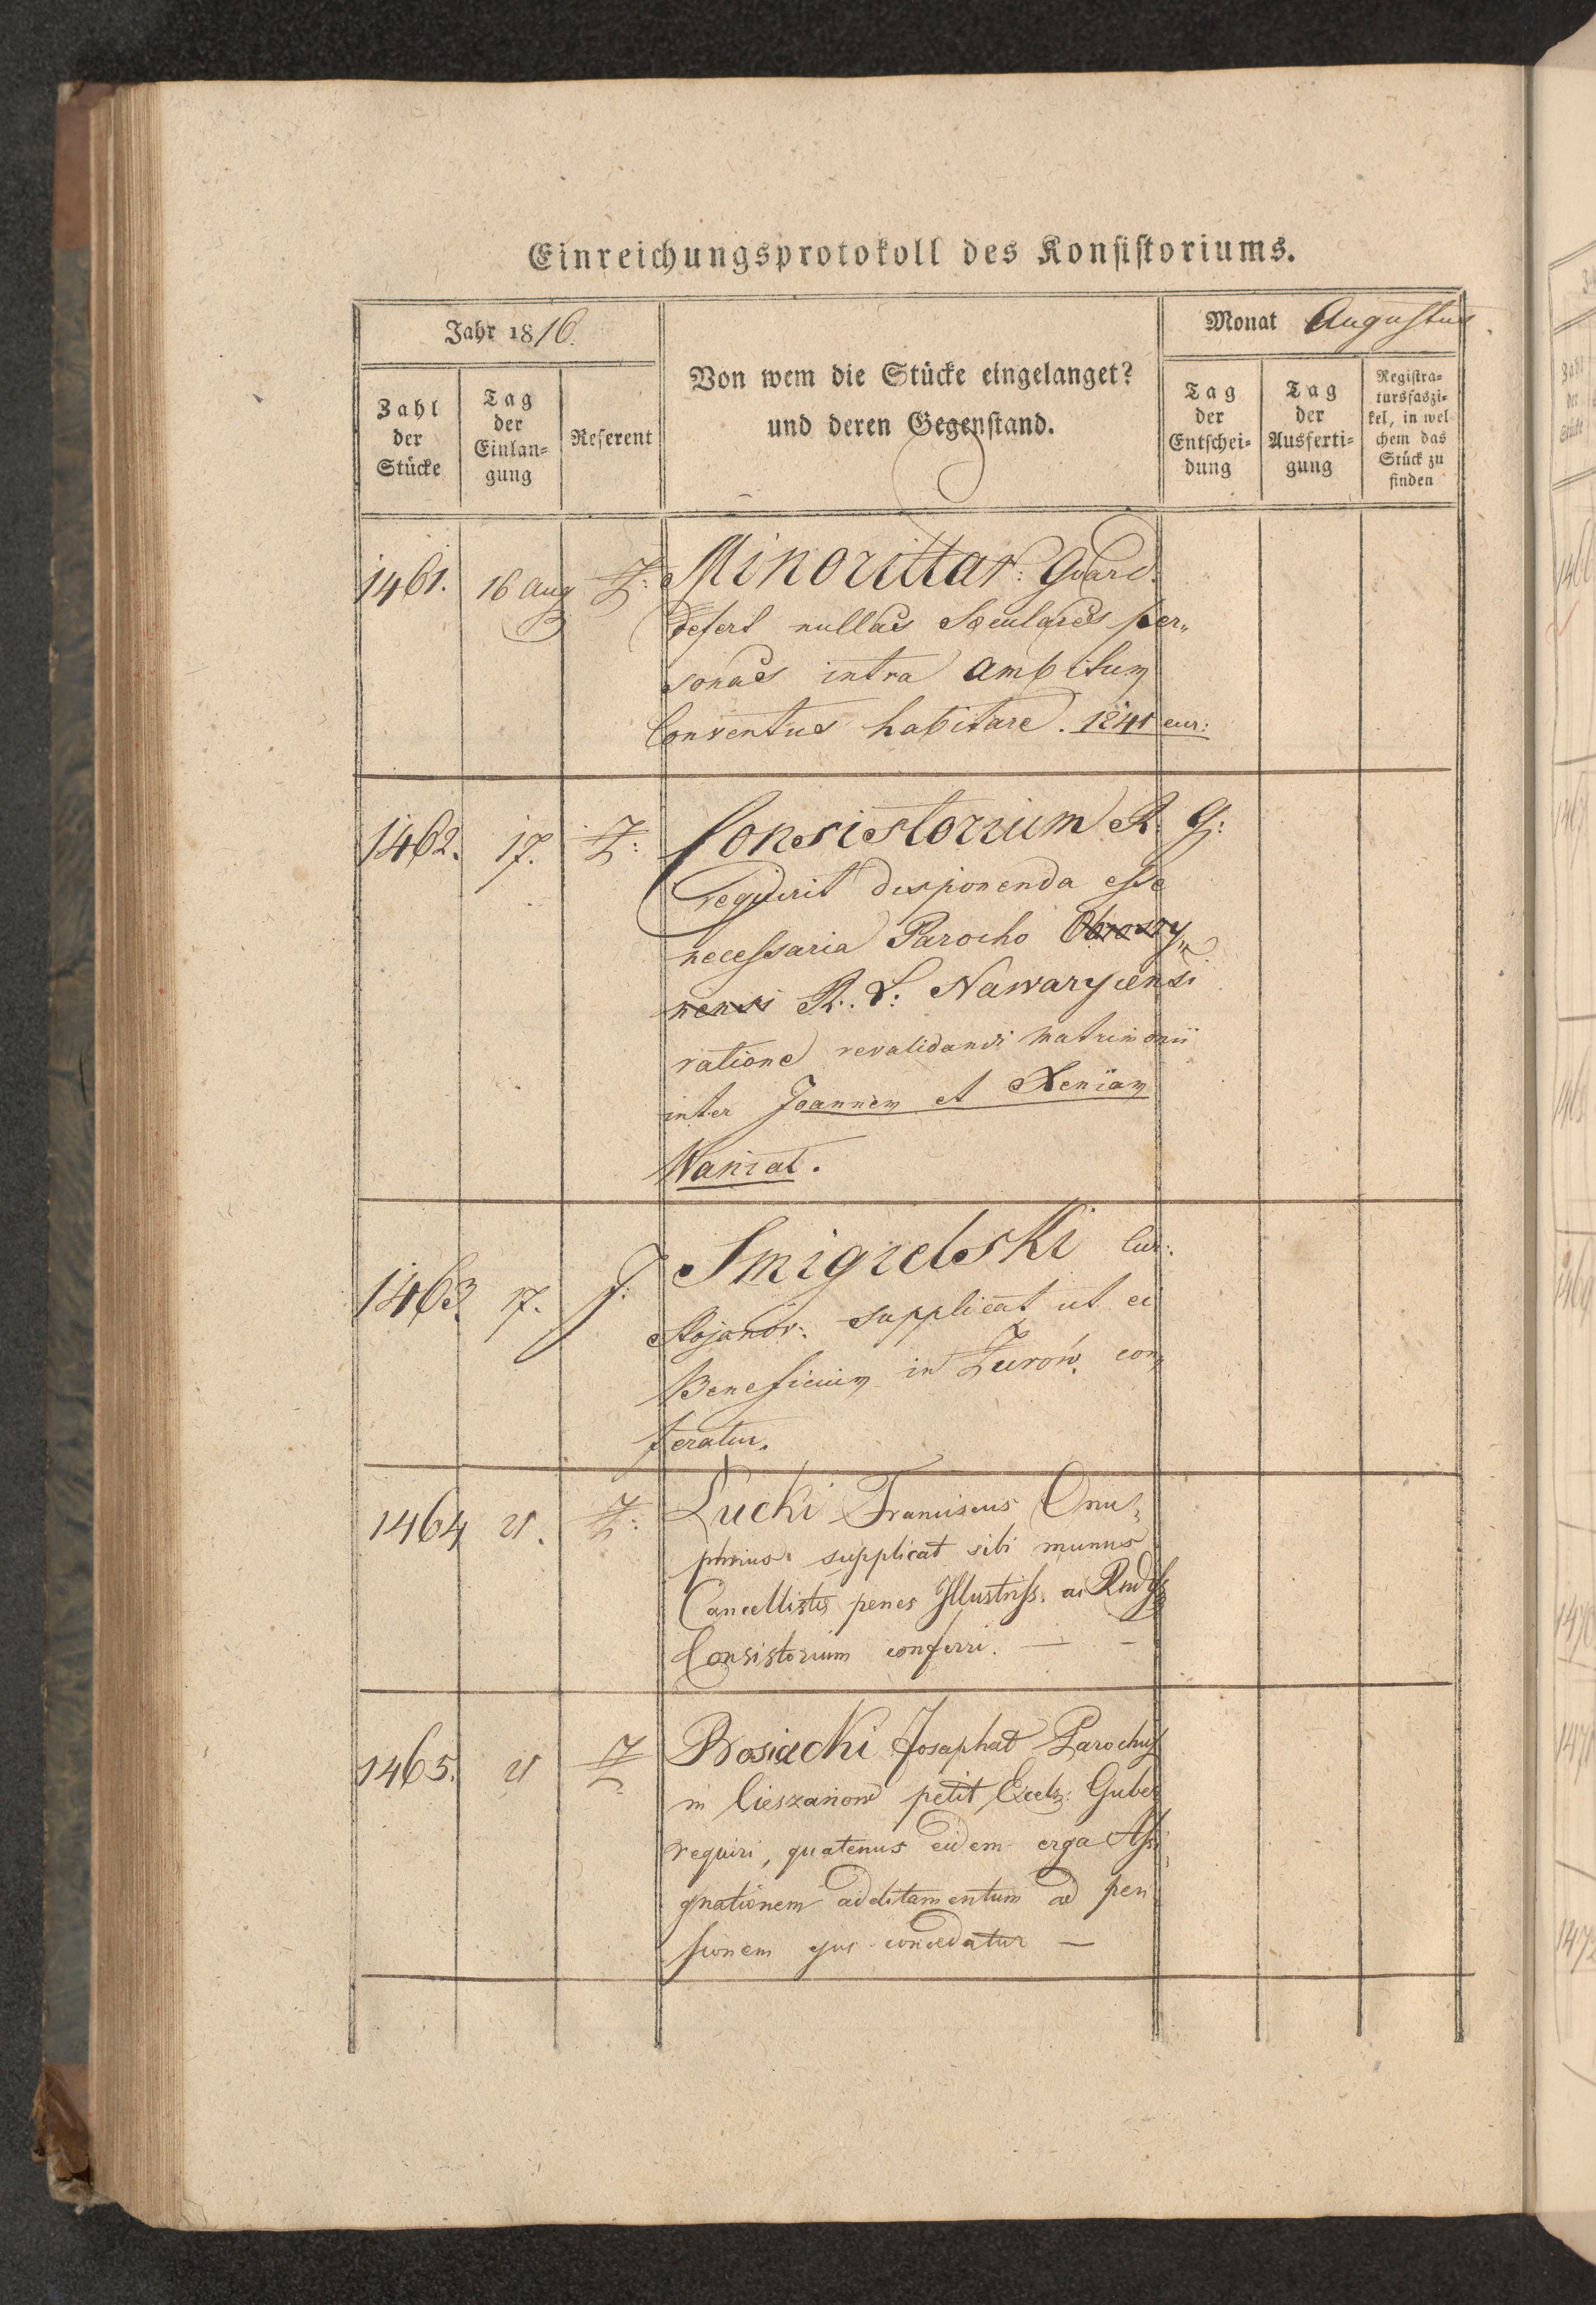 Einreichungsprotokoll des Konsistoriums.
Jahr 1816.
Monat Augustus
Zahl der Stücke
Tag der Einlan=gung
Referent
Von wem die Stücke eingelanget?
und deren Gegenstand.
Tag der Entschei=dung
Tag der Ausferti=gung
Registra=tursfaszi=kel, in wel chem das Stück zu finden
1461. 16 Aug Z: Minorittar: Guard.
defert nullas Seculares per„
sonas intra ambitum
Conventus habitare. 1841 cur:
1462. 17. Z: Consistorium R. G:
requirit disponenda esse
necessaria Parocho Obroszy„
nensi R. L: Nawaryensi
ratione revalidandi matrimonii
inter Joannem et Xeniam
Waniat.
1463. 17. J: Smigielski Cur:
Rojanov: supplicat ut ei
Beneficium in Zurów. con„
feratur.
1464 21. Z: Łucki Franciscus Onu„
phrius. supplicat sibi munus
Cancellistes penes Illustriss. ac Rndiss
Consistorium conferri. — –
1465. 21 Z Bosiacki Josaphat Parochus
in Cieszanow petit Excels: Guber
requiri, quatenus eidem erga Assi„
gnationem additamentum ad pen
sionem ejus concedatur —